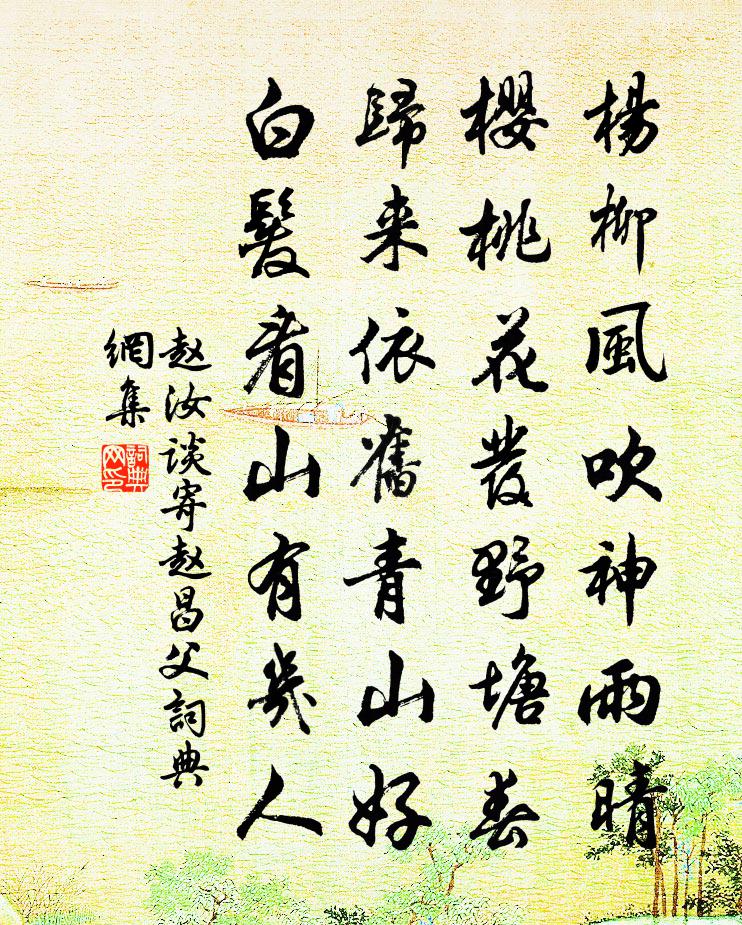 楊柳風吹神雨晴
櫻桃花發野塘春
歸来依舊青山好
白髮看山有幾人
赵汝谈寄赵昌父詞典
網集
詞典
网印